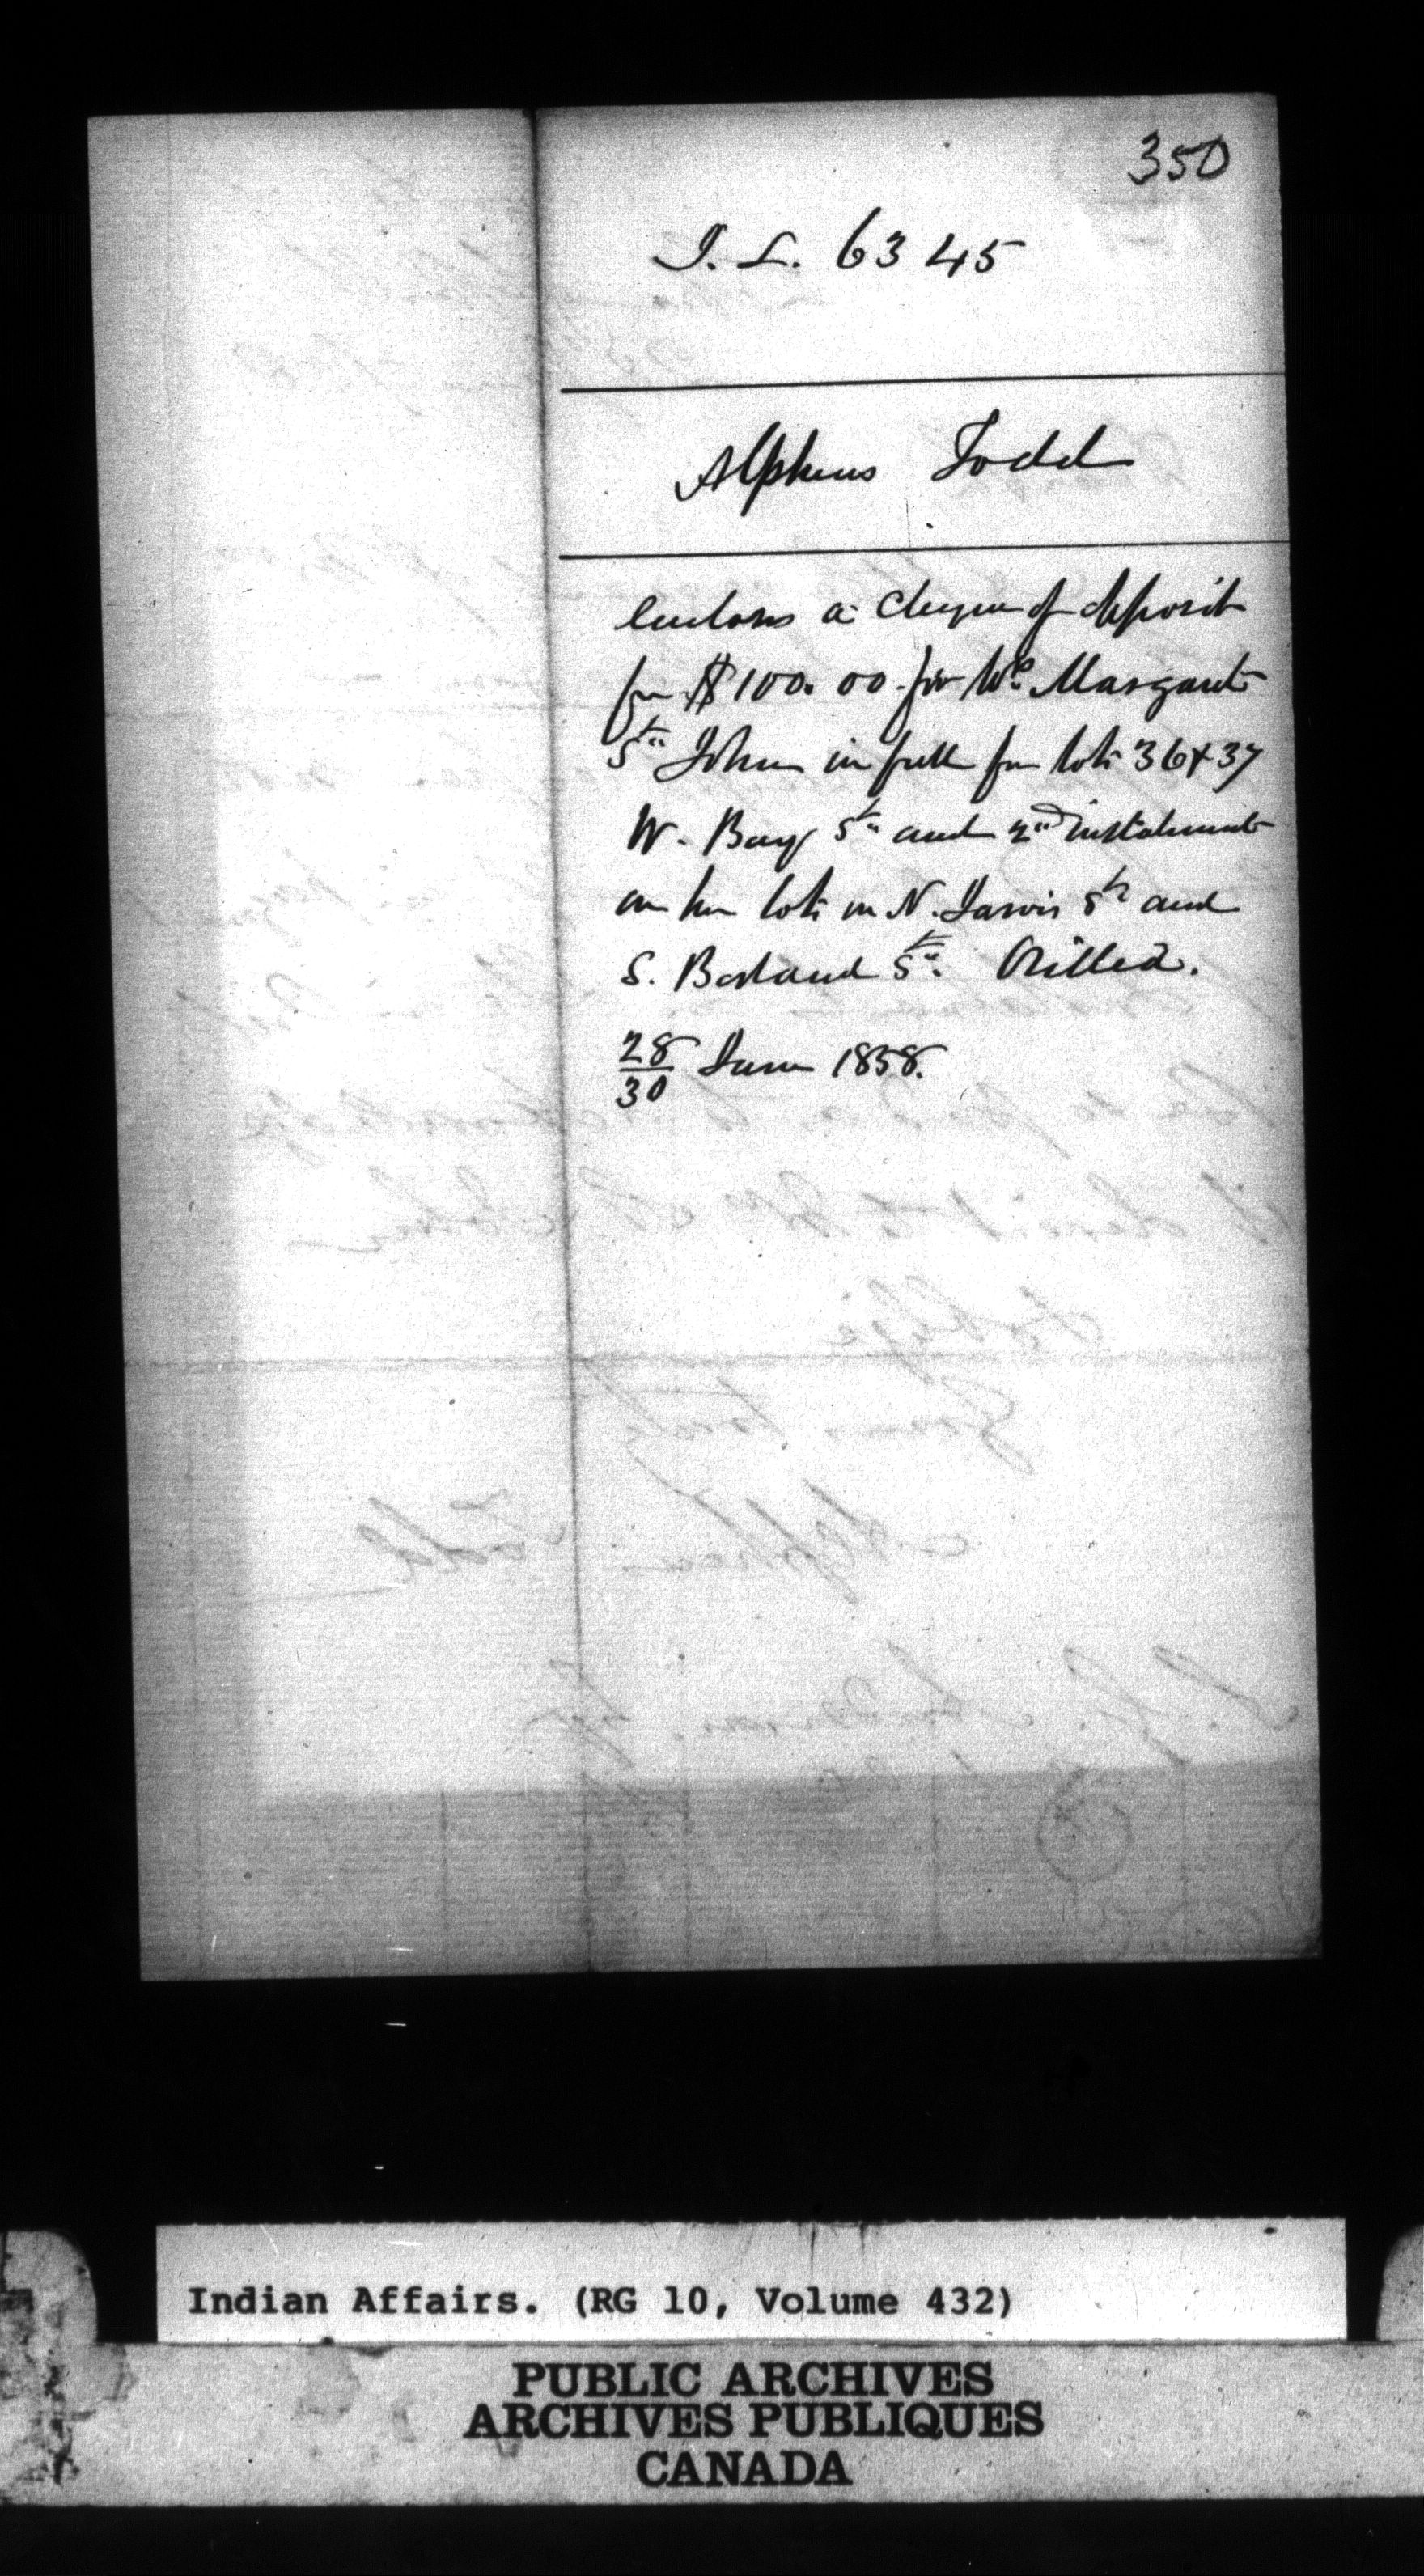 350
I. L. 6345
Alpheus Todd
Encloses a cheque of deposit
for $100.00 for Margaret
St. John in full for lots 36 & 37
W. Bay St. and 2nd instalment
on her lots on N. Jarvis St. and
S. Borland St. Orillia.
28/30 June 1858.
Indian Affairs. (RG 10, Volume 432)
PUBLIC ARCHIVES
ARCHIVES PUBLIQUES
CANADA